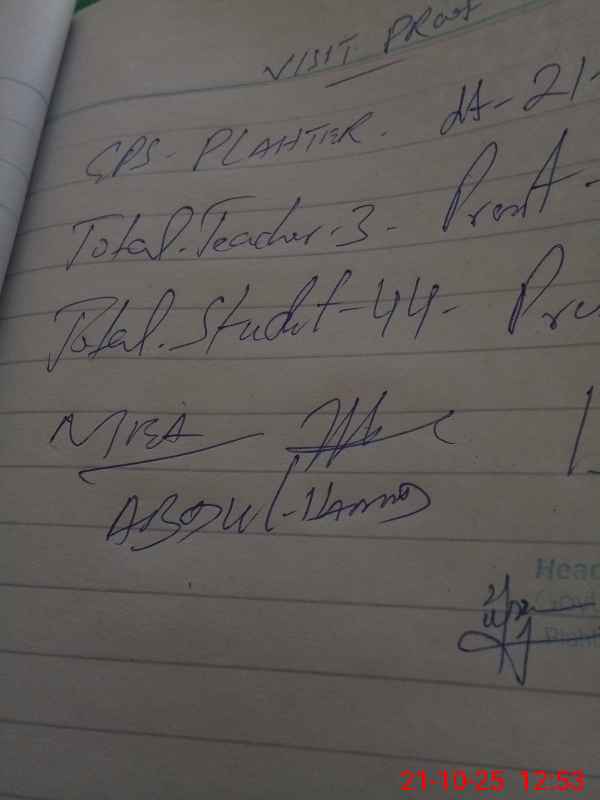 VISIT PROOF
GPS- PLAHTER. dt- 21-
Total.Teacher-3- Presnt-
Total.Studet-44- Pre
MBA
ABDUL-HAMID
Head
Govt
21-10-25 12:53